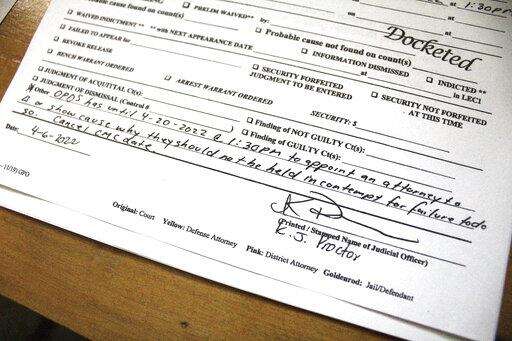 1:30PM
cause found on count(s)
PRELIM WAIVED**
by:
WAIVED INDICTMENT ** with NEXT APPEARANCE DATE
Probable cause not found on count(s)
Docketed
FAILED TO APPEAR for
at
INFORMATION DISMISSED
REVOKE RELEASE
at
INDICTED **
BENCH WARRANT ORDERED
SECURITY FORFEITED
in LEC1
JUDGMENT TO BE ENTERED
SECURITY NOT FORFEITED
ARREST WARRANT ORDERED
AT THIS TIME
JUDGMENT OF ACQUITTAL Ct(s):
SECURITY: $
JUDGMENT OF DISMISSAL (Control #
)
Finding of NOT GUILTY Ct(s):
Finding of GUILTY Ct(s):
Other OPDS has until 4-20-2022 @ 1:30PM to appoint an attorney to
or show cause why they should not be held in contempt for failure to do
so. Cancel CMC date
Date: 4-6-2022
(Printed / Stamped Name of Judicial Officer)
K.J. Proctor
11/19) GPO
Original: Court Yellow: Defense Attorney Pink: District Attorney Goldenrod: Jail/Defendant